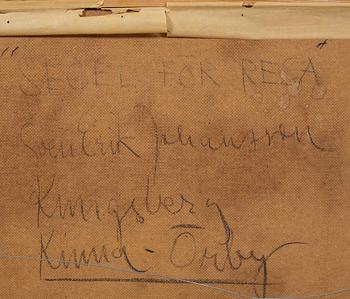 "SEGEL FÖR RESA"
Sven Erik Johansson
Kungsberg
Kinna - Örby